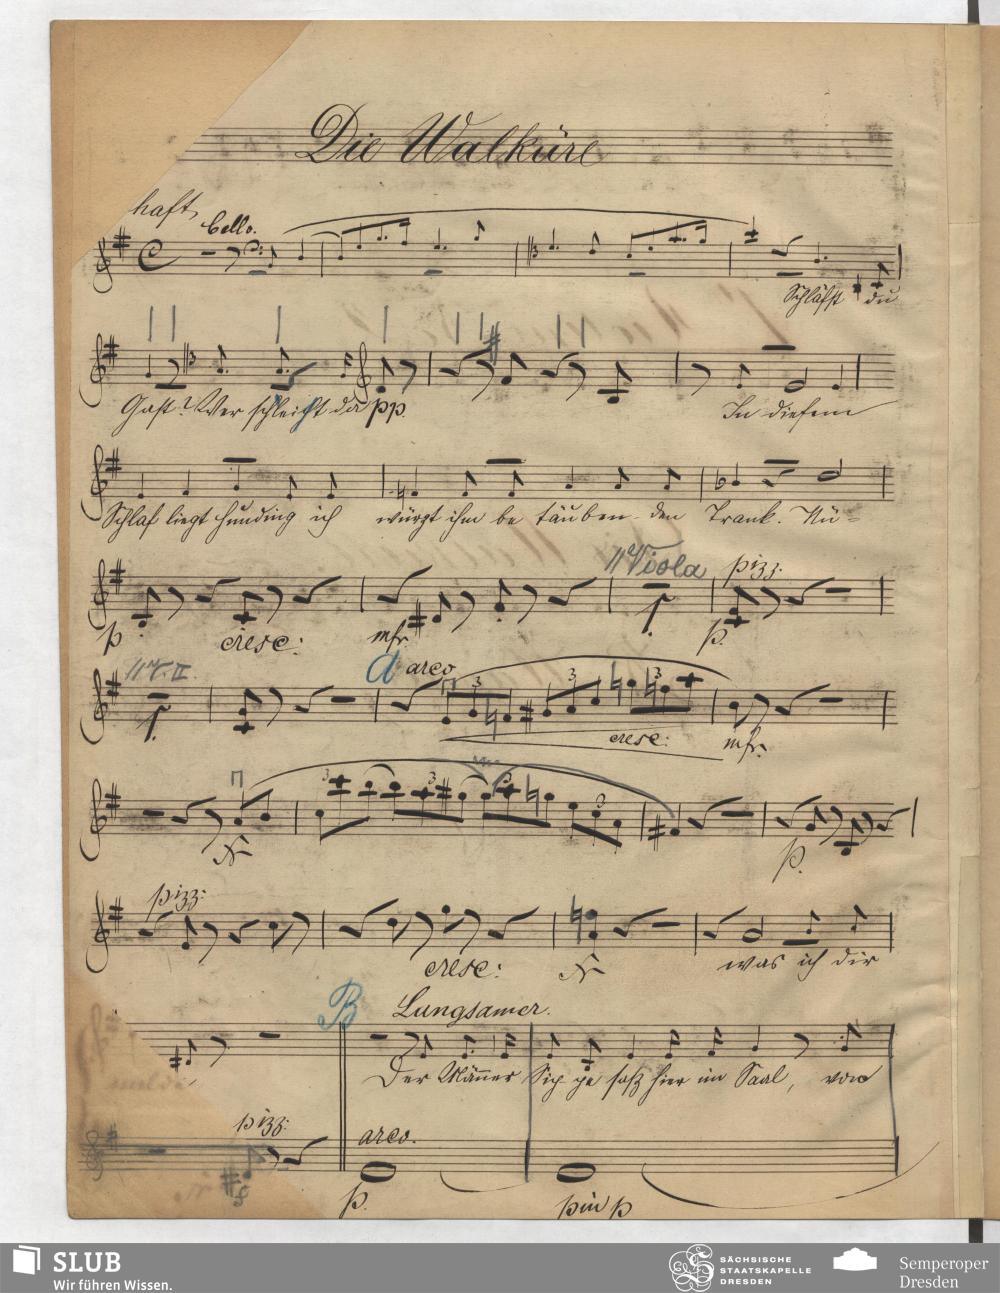 Die Walküre
haft
Cello.
Schläfst du
Gast? Wer schleicht da pp. In diesem
Schlaf liegt Hunding ich würzt ihm be täuben den Trank. Nü-
Viola pizz:
p cresc: mfr. p.
V. II. A arco
3 3 3
cresc: mfr.
3 3 3 3
p.
pizz:
cresc:
was ich dir
B Langsamer.
Der Männer Sip pe saß hier im Saal, von
pizz: arco.
p. piu p
SLUB
Wir führen Wissen.
SÄCHSISCHE
STAATSKAPELLE
DRESDEN
Semperoper
Dresden